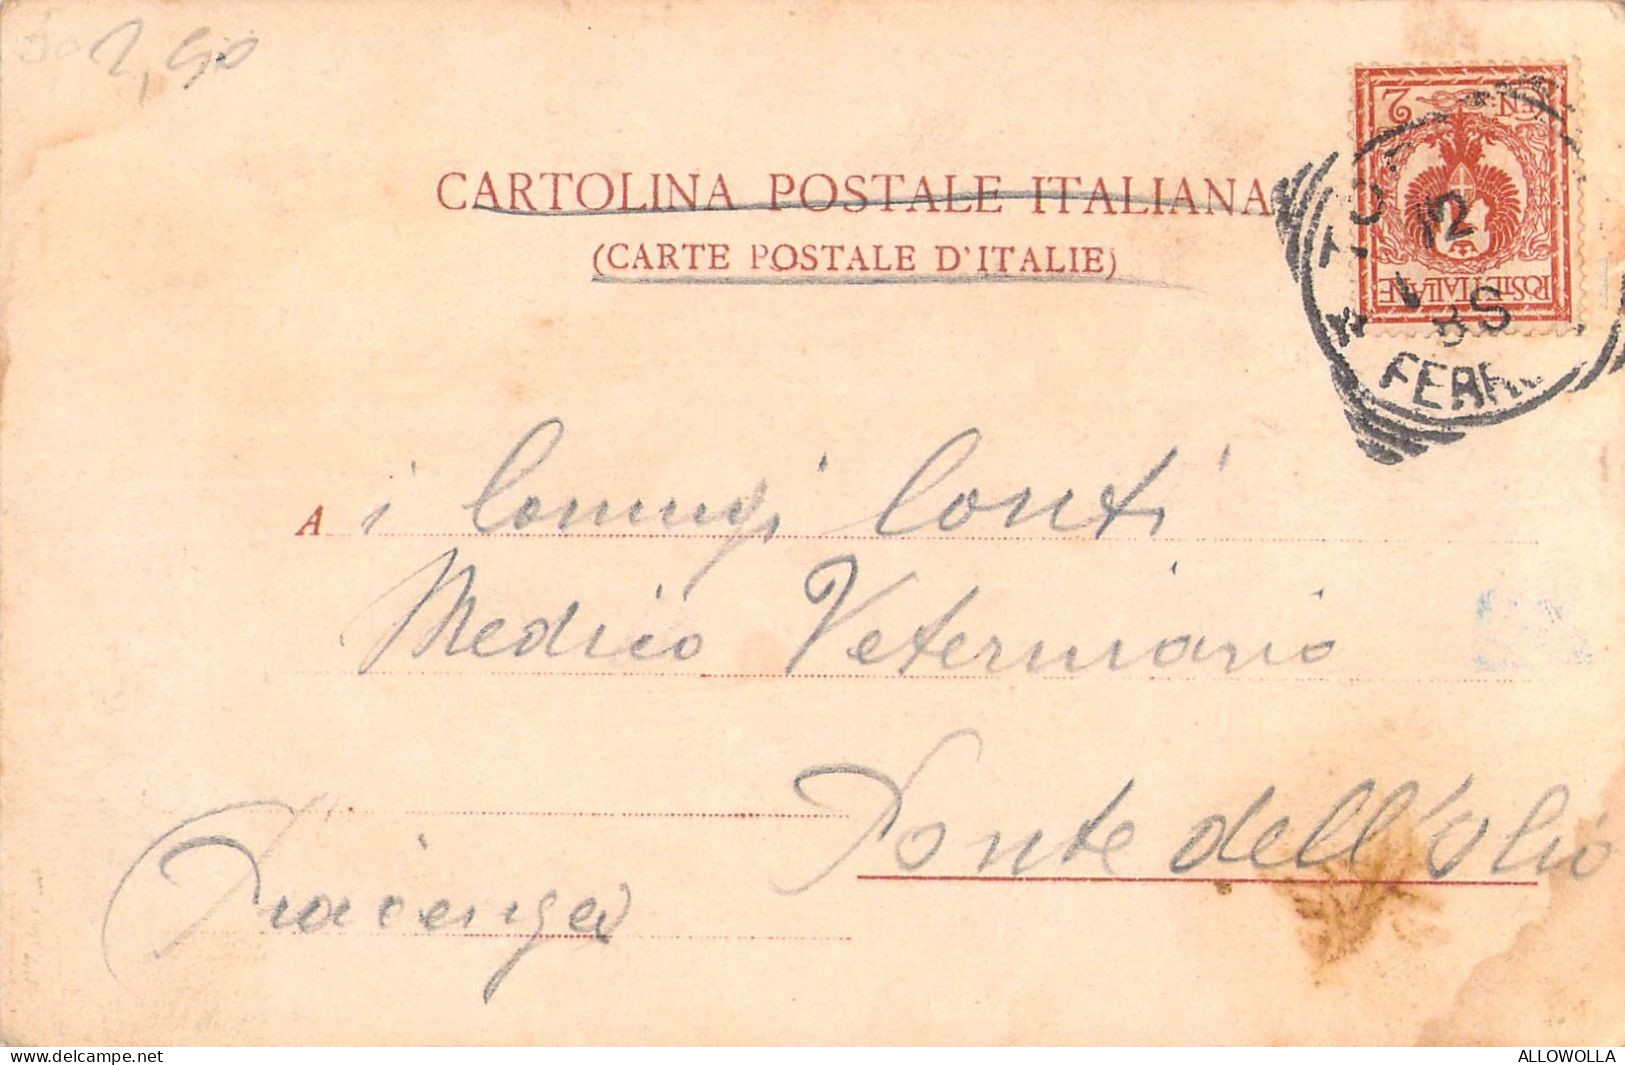 2,90
CARTOLINA POSTALE ITALIANA
(CARTE POSTALE D'ITALIE)
CEN. 2
POSTE ITALIANE
12
FERR
A i Coniugi Conti
Medico Veterinario
Ponte dell'Olio
Piacenza
delcampe.net
ALLOWOLLA